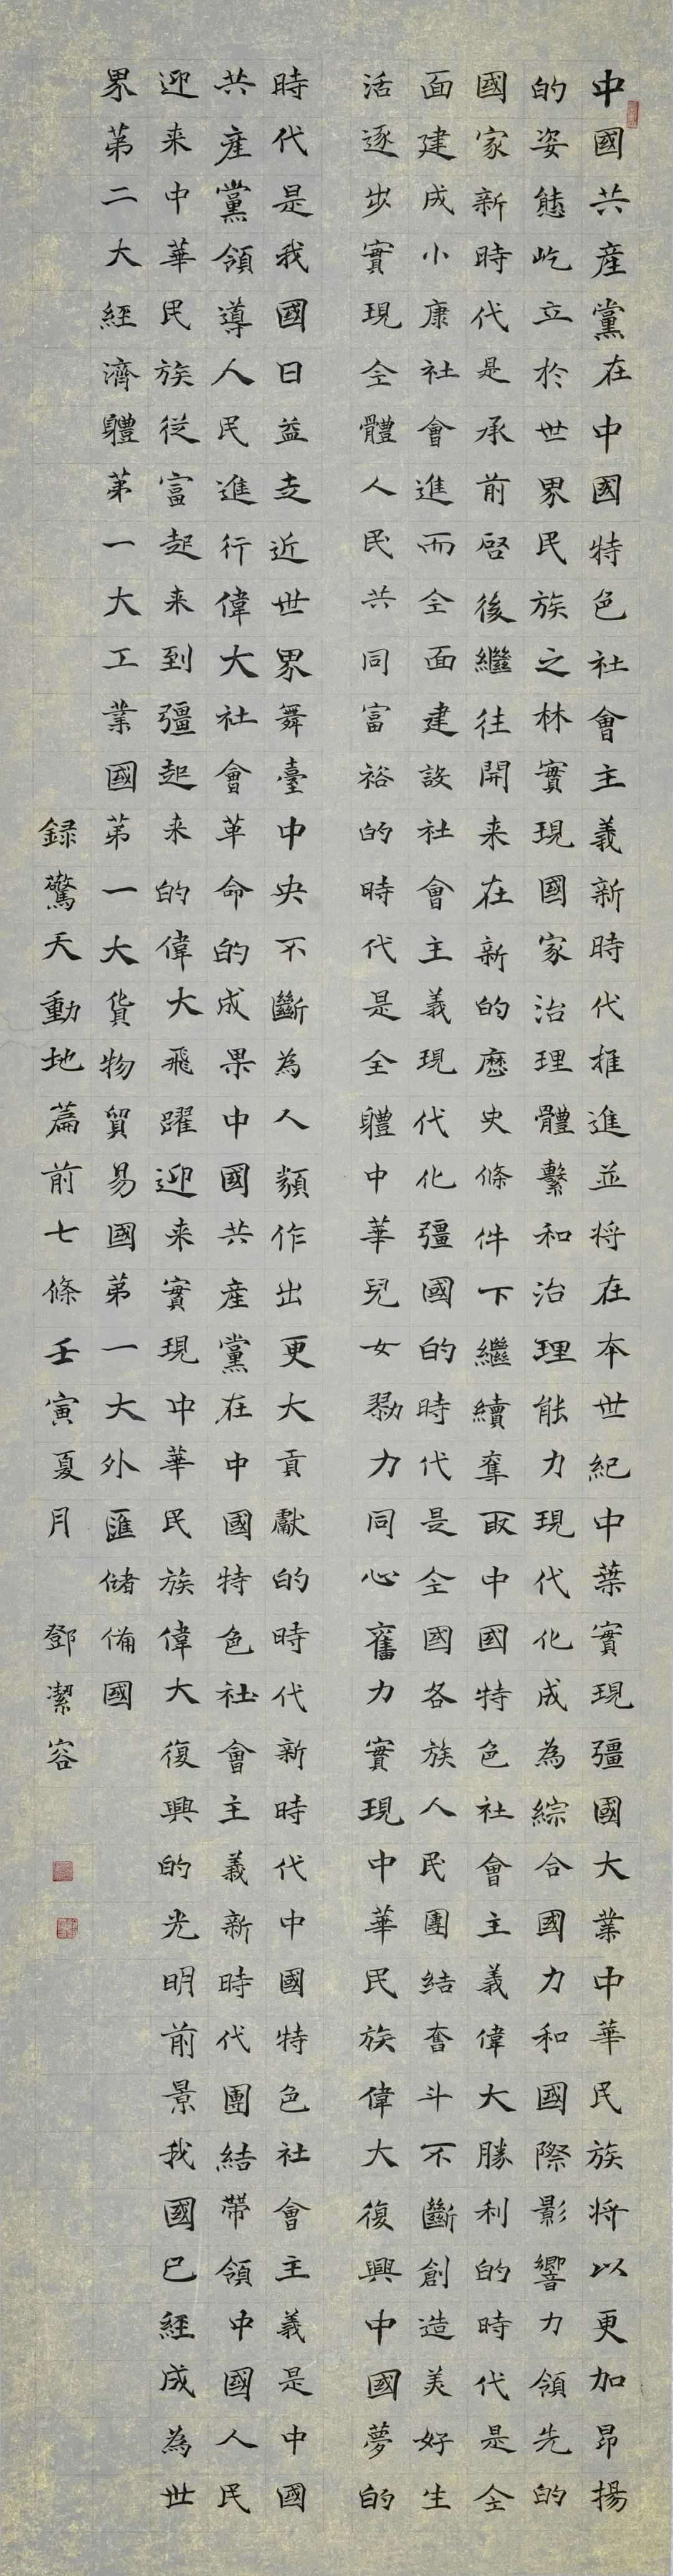 中國共産黨在中國特色社會主義新時代推進並将在本世紀中葉實現彊國大業中華民族将以更加昂揚
的姿態屹立於世界民族之林實現國家治理體繫和治理能力現代化成為綜合國力和國際影響力領先的
國家新時代是承前啓後繼往開来在新的歷史條件下繼續奪取中國特色社會主義偉大勝利的時代是全
面建成小康社會進而全面建設社會主義現代化彊國的時代是全國各族人民團結奮斗不斷創造美好生
活逐步實現全體人民共同富裕的時代是全體中華兒女勠力同心奮力實現中華民族偉大復興中國夢的
時代是我國日益走近世界舞臺中央不斷為人類作出更大貢獻的時代新時代中國特色社會主義是中國
共産黨領導人民進行偉大社會革命的成果中國共産黨在中國特色社會主義新時代團結帶領中國人民
迎来中華民族從富起来到彊起来的偉大飛躍迎来實現中華民族偉大復興的光明前景我國已經成為世
界第二大經濟體第一大工業國第一大貨物貿易國第一大外匯儲備國
録驚天動地篇前七條壬寅夏月 鄧潔容